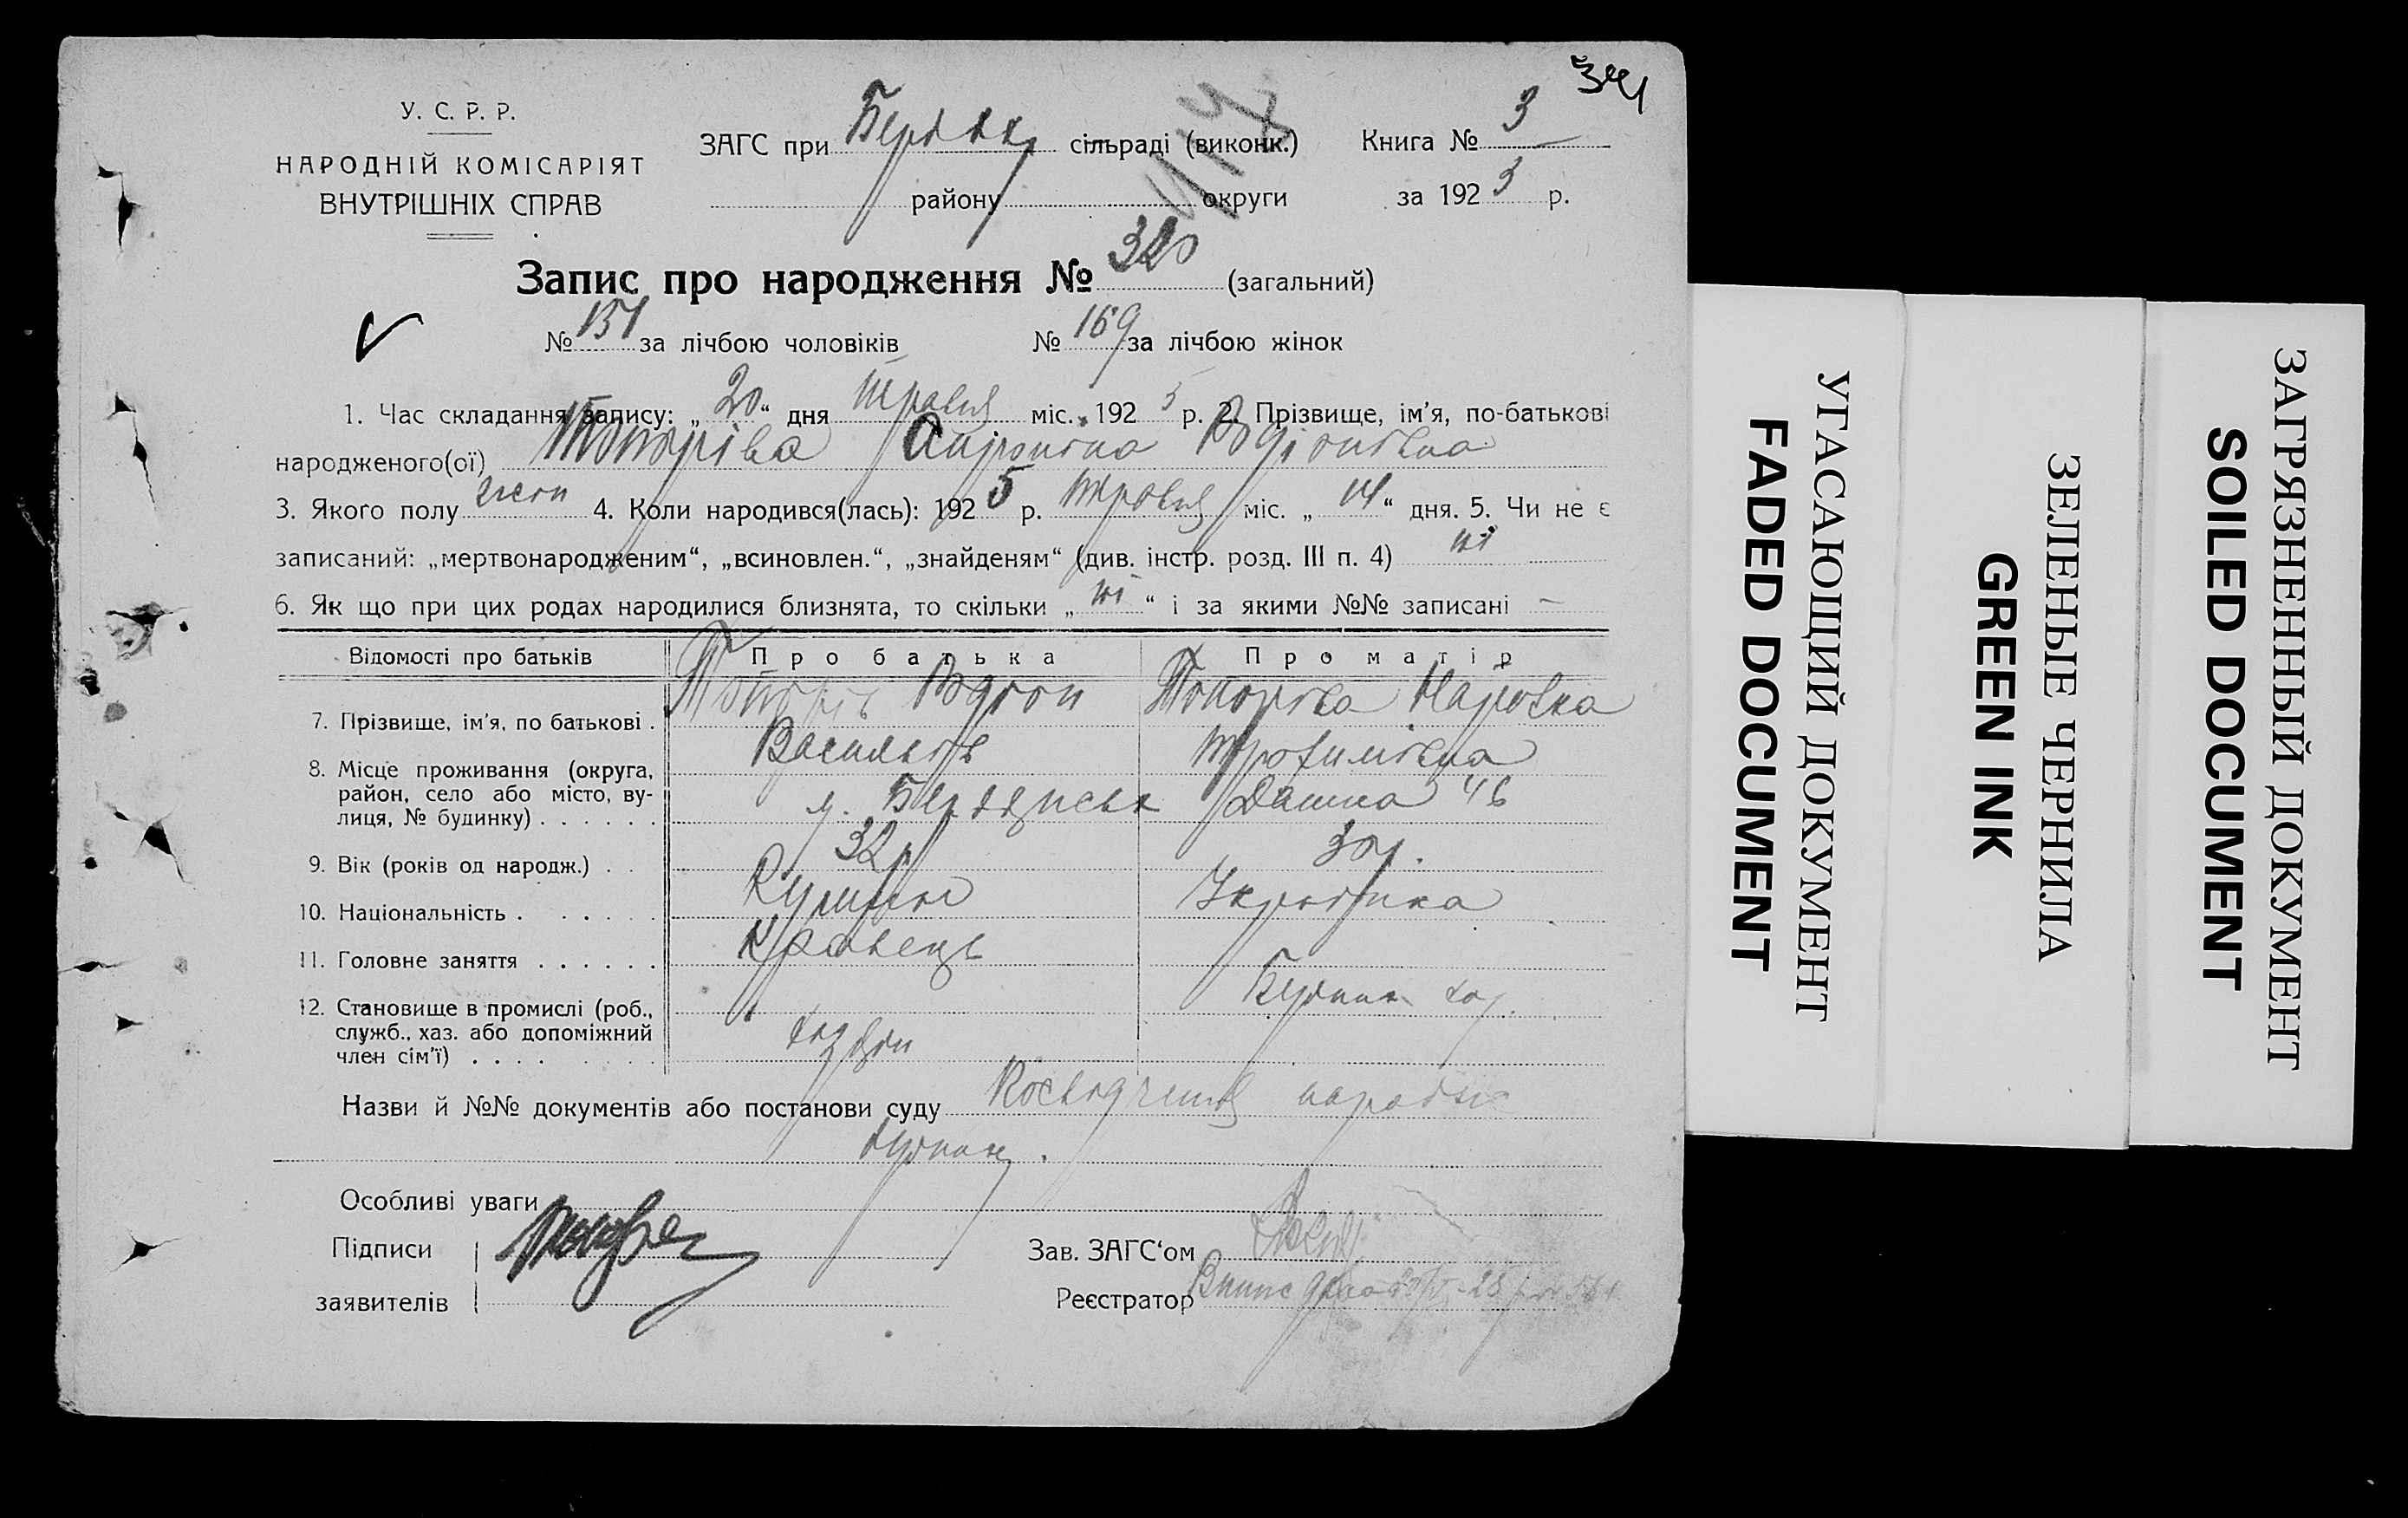 341
У. С. Р. Р.
НАРОДНІЙ КОМІСАРІЯТ
ВНУТРІШНІХ СПРАВ
ЗАГС при сільраді (виконк.)
району округи
Книга № 3
за 192 р.
Запис про народження № 320 (загальний)
№ 151 за лічбою чоловіків № 169 за лічбою жінок
1. Час складання запису: „ 20 “ дня Травня міс. 192 5 р. 2. Прізвище, ім’я, по-батькові
народженого(ої) Топоріва Родіонівна
3. Якого полу жон 4. Коли народився(лась): 192 5 р. Травня міс. „ 14 “ дня. 5. Чи не є
записаний: „мертвонародженим“, „всиновлен.“, „знайденям“ (див. інстр. розд. III п. 4) ні
6. Як що при цих родах народилися близнята, то скільки „ ні “ і за якими №№ записані —
Відомості про батьків Про батька Про матір
7. Прізвище, ім’я, по батькові . Топорів Родіон Топоріва Марфа
Васильів Трохимівна
8. Місце проживання (округа,
район, село або місто, ву-
лиця, № будинку) . . . . . . м. Бердянськ 46
9. Вік (років од народж.) . . 32 р 30 р.
10. Національність . . . . . . Українка
11. Головне заняття . . . . . . Кравець
12. Становище в промислі (роб.,
служб., хаз. або допоміжний
член сім’ї) . . . . хазяїн
Назви й №№ документів або постанови суду Посвідчення
Особливі уваги
Підписи
заявителів
Зав. ЗАГС‘ом
Реєстратор
УГАСАЮЩИЙ ДОКУМЕНТ
FADED DOCUMENT
ЗЕЛЕНЫЕ ЧЕРНИЛА
GREEN INK
ЗАГРЯЗНЕННЫЙ ДОКУМЕНТ
SOILED DOCUMENT